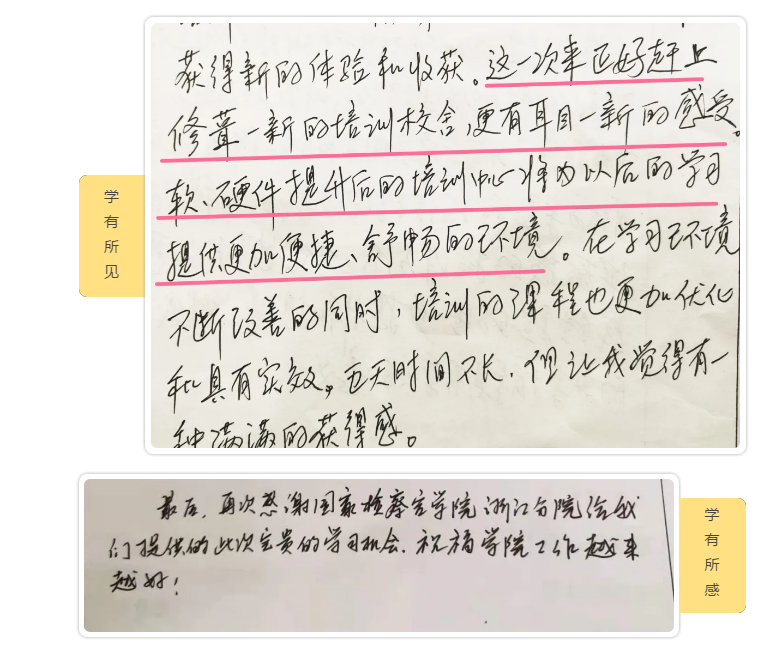 获得新的体验和收获。这一次来正好赶上
修葺一新的培训校舍,更有耳目一新的感受。
软、硬件提升后的培训中心将为以后的学习
提供更加便捷、舒畅的环境。在学习环境
不断改善的同时,培训的课程也更加优化
和具有实效。五天时间不长,但让我觉得有一
种满满的获得感。
学有所见
最后,再次感谢国家检察官学院浙江分院给我
们提供的此次宝贵的学习机会.祝福学院工作越来
越好!
学有所感